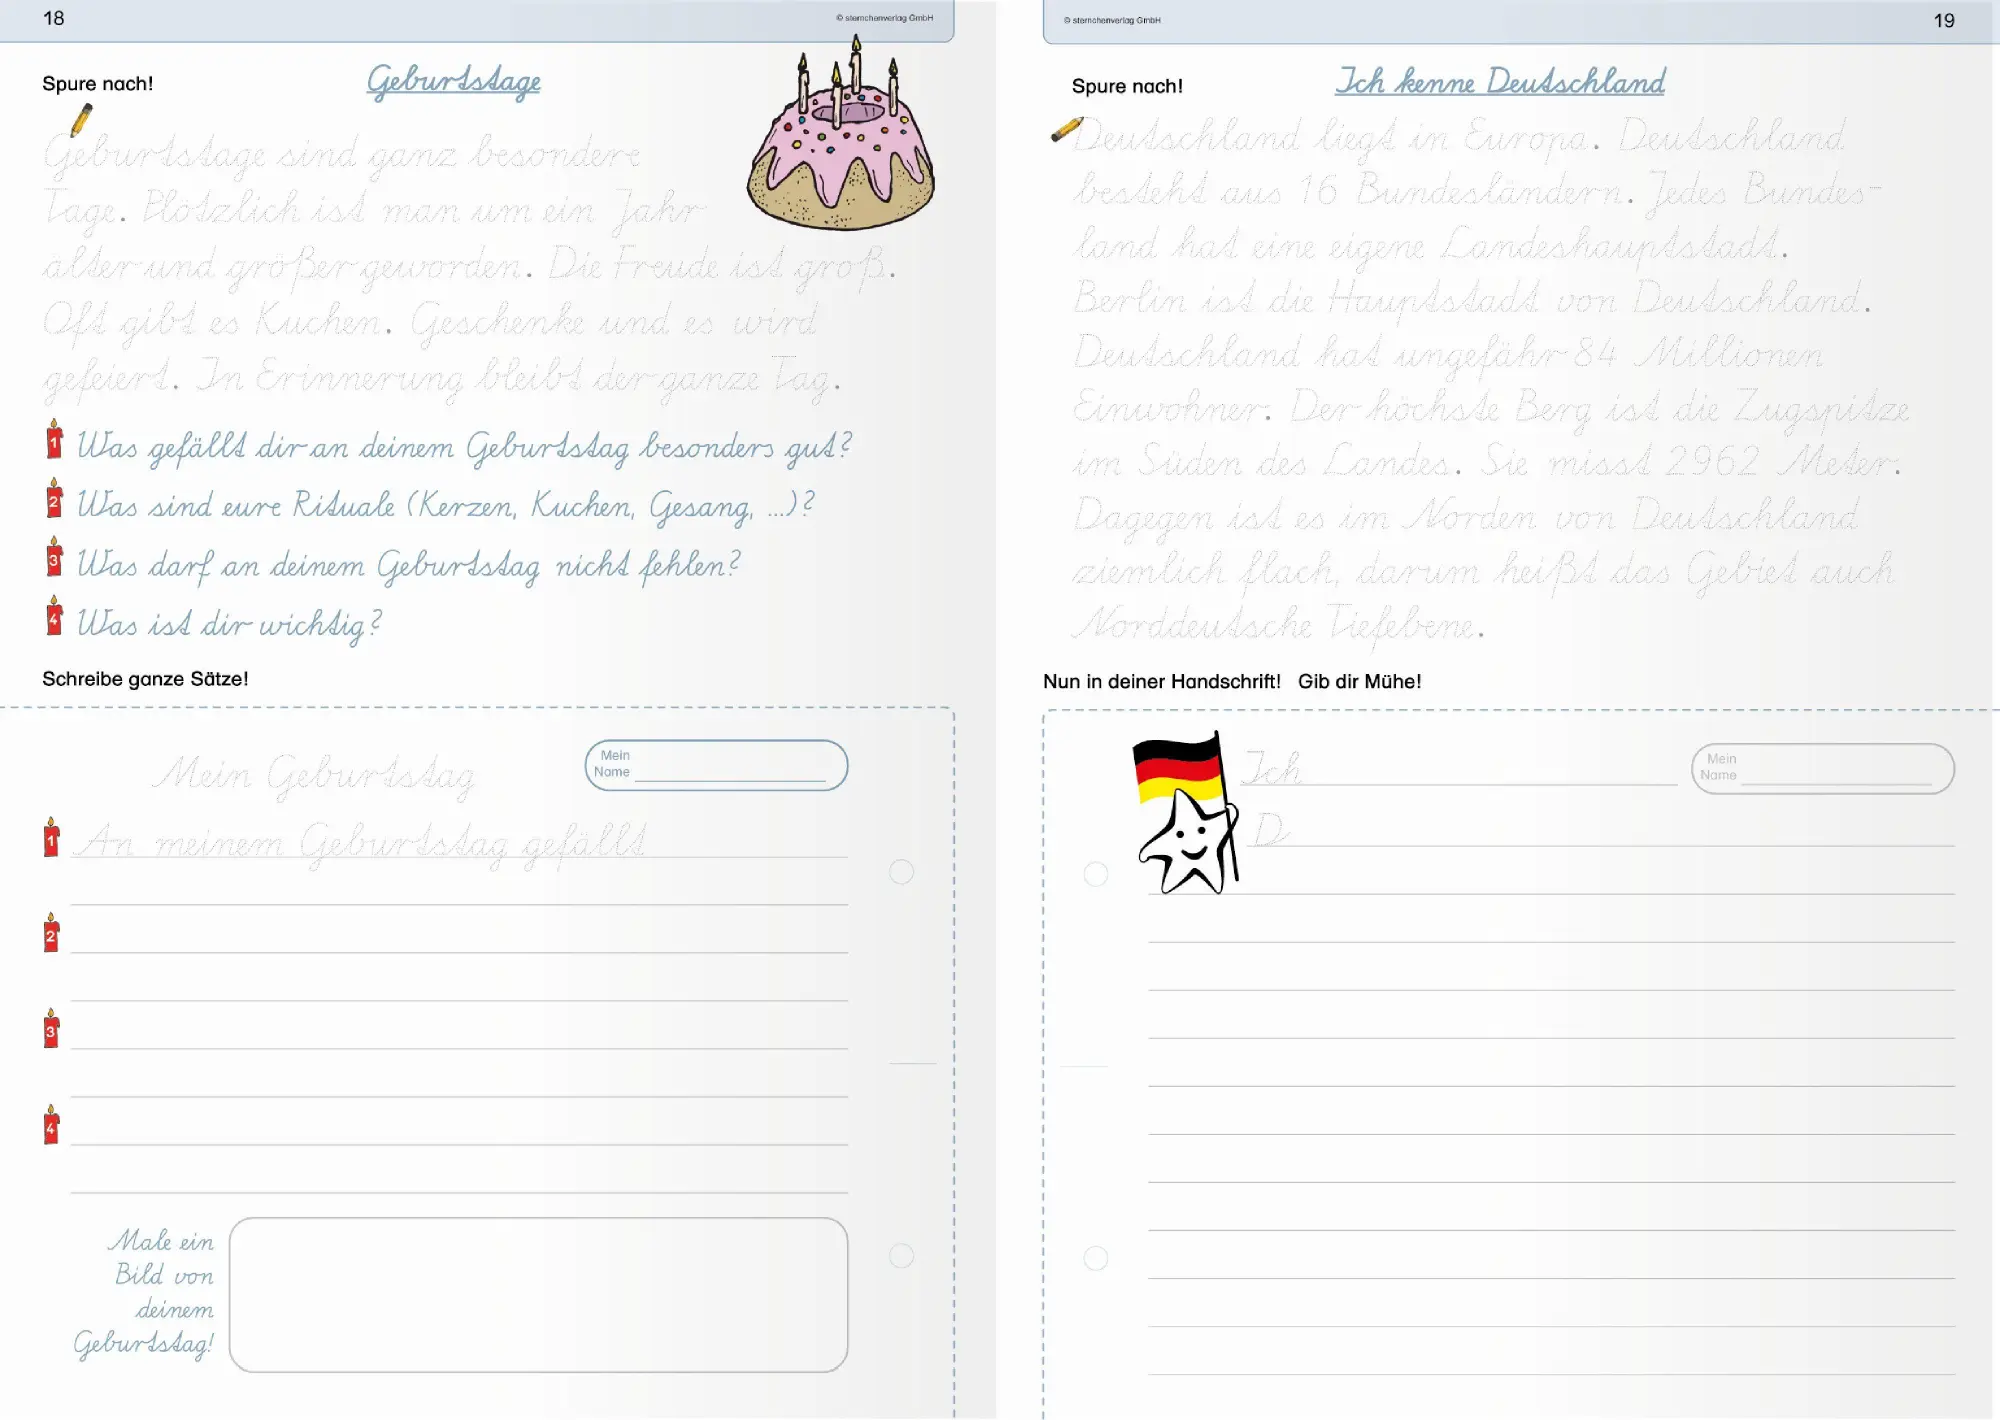 18
© sternchenverlag GmbH
Spure nach!
Geburtstage
Geburtstage sind ganz besondere
Tage. Plötzlich ist man um ein Jahr
älter und größer geworden. Die Freude ist groß.
Oft gibt es Kuchen. Geschenke und es wird
gefeiert. In Erinnerung bleibt der ganze Tag.
1 Was gefällt dir an deinem Geburtstag besonders gut?
2 Was sind eure Rituale (Kerzen, Kuchen, Gesang, ...)?
3 Was darf an deinem Geburtstag nicht fehlen?
4 Was ist dir wichtig?
Schreibe ganze Sätze!
Mein Geburtstag
Mein
Name
1 An meinem Geburtstag gefällt
2
3
4
Male ein
Bild von
deinem
Geburtstag!
© sternchenverlag GmbH
19
Spure nach!
Ich kenne Deutschland
Deutschland liegt in Europa. Deutschland
besteht aus 16 Bundesländern. Jedes Bundes-
land hat eine eigene Landeshauptstadt.
Berlin ist die Hauptstadt von Deutschland.
Deutschland hat ungefähr 84 Millionen
Einwohner. Der höchste Berg ist die Zugspitze
im Süden des Landes. Sie misst 2962 Meter.
Dagegen ist es im Norden von Deutschland
ziemlich flach, darum heißt das Gebiet auch
Norddeutsche Tiefebene.
Nun in deiner Handschrift! Gib dir Mühe!
Ich
Mein
Name
D